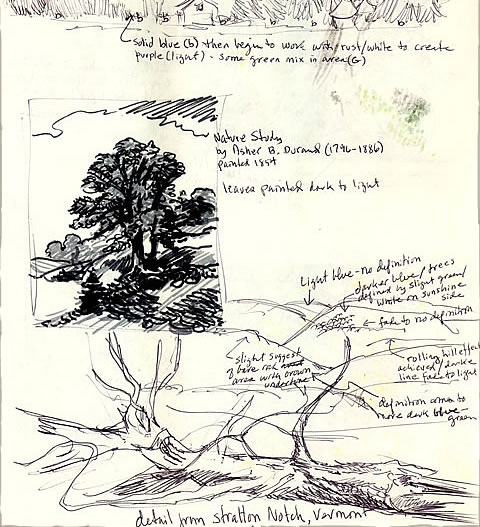 b b b b b
solid blue (b) then begin to work with rust/white to create
purple (light) - some green mix in area (G)
Nature Study
by Asher B. Durand (1796-1886)
painted 1854
leaves painted dark to light
Light blue - no definition
darker blue/trees
defined by slight green/
white on sunshine
side
fade to no definition
slight suggest
of bare rock
area with brown
undertone
rolling hill effect
achieved/darker
line fade to light
definition comes to
more dark blue-
green
detail from Stratton Notch, Vermont